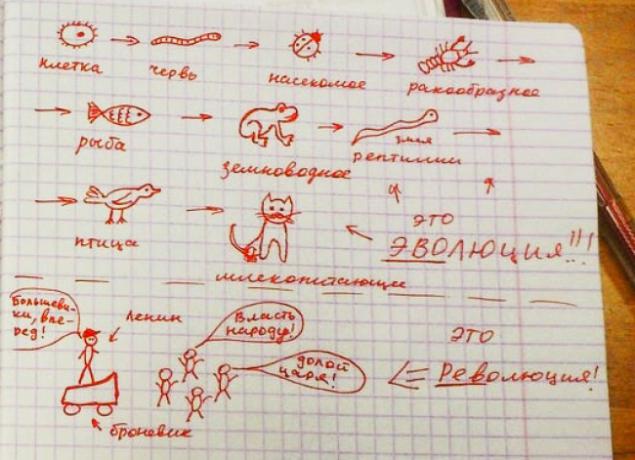 клетка червь насекомое ракообразное
рыба земноводное змея рептилии
птица млекопитающее
это
ЭВОЛЮЦИЯ!!!
Большеви-
ки, впе-
ред!
Ленин
Власть
народу!
долой
царя!
это
Революция!
броневик